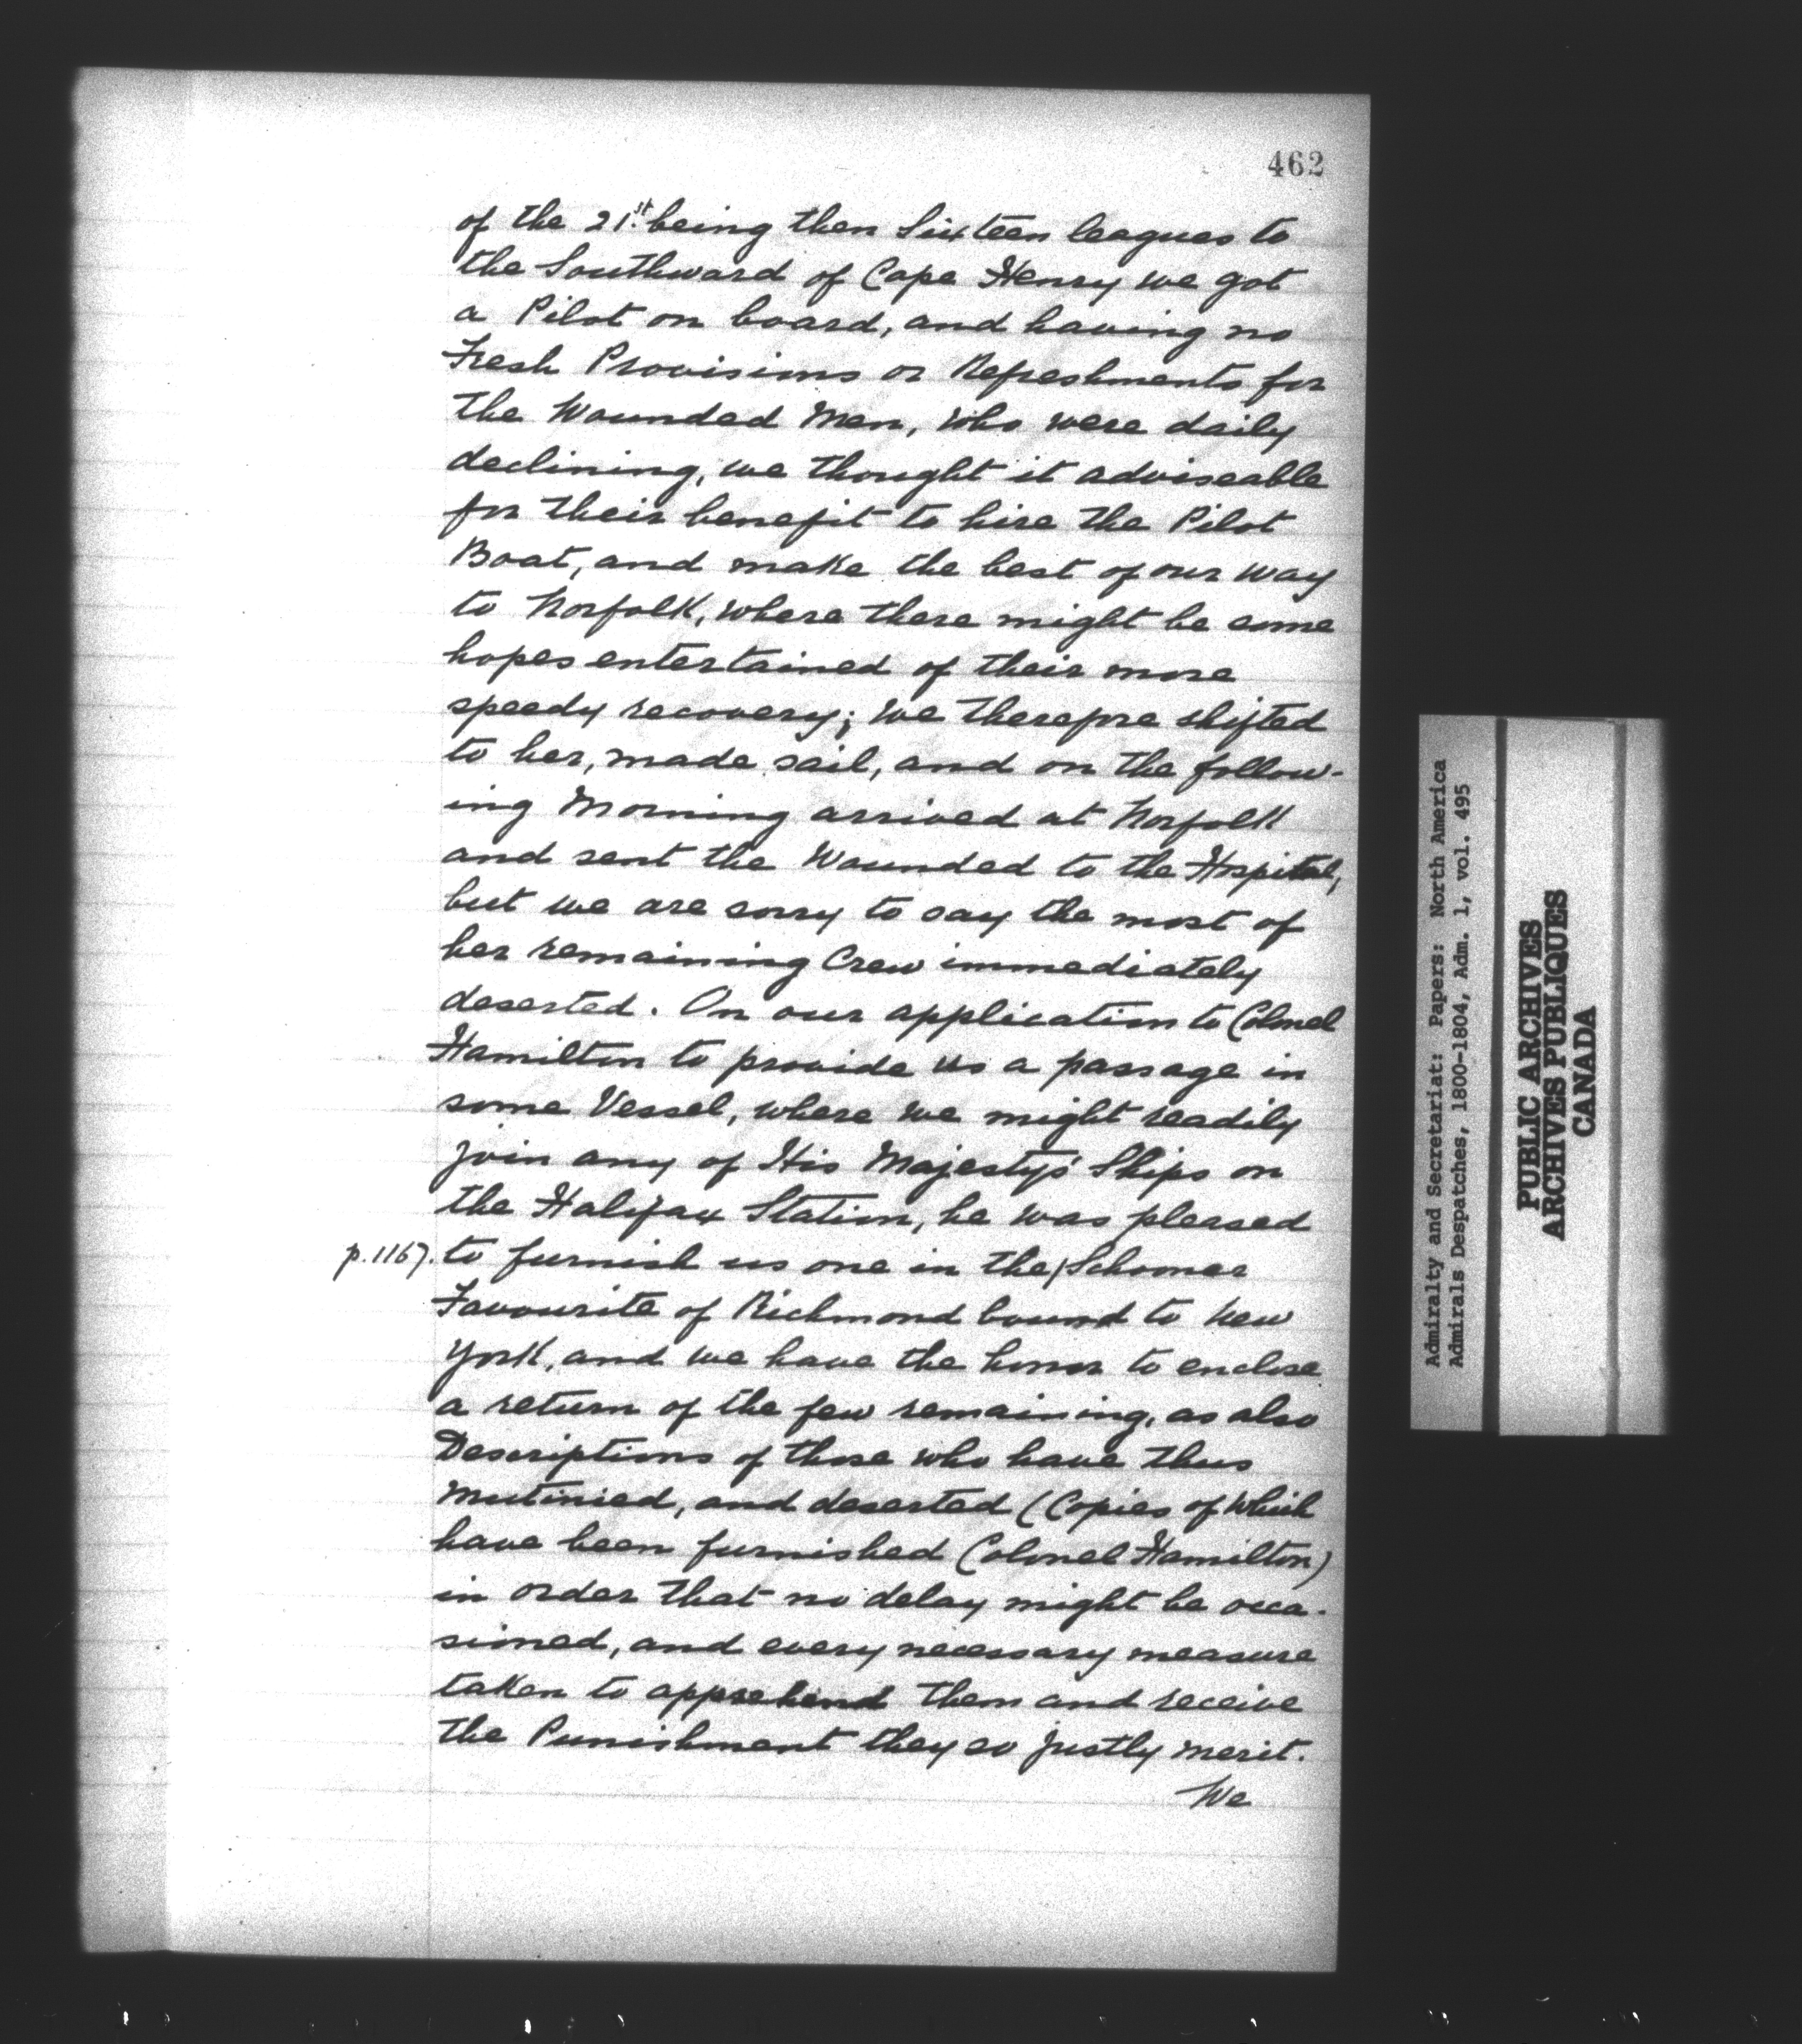 462
of the 21st. being then Sixteen leagues to
the Southward of Cape Henry we got
a Pilot on board, and having no
Fresh Provisions or Refreshments for
the Wounded Men, who were daily
declining, we thought it adviseable
for their benefit to hire the Pilot
Boat, and make the best of our way
to Norfolk, where there might be some
hopes entertained of their more
speedy recovery; we therefore shifted
to her, made sail, and on the follow-
ing Morning arrived at Norfolk
and sent the Wounded to the Hospital,
but we are sorry to say the most of
her remaining Crew immediately
deserted. On our application to Colonel
Hamilton to provide us a passage in
some Vessel, where we might readily
join any of His Majesty's Ships on
the Halifax Station, he was pleased
p.1167. to furnish us one in the/Schooner
Favourite of Richmond bound to New
York, and we have the honor to enclose
a return of the few remaining, as also
Descriptions of those who have thus
mutinied, and deserted (Copies of which
have been furnished Colonel Hamilton)
in order that no delay might be occa-
sioned, and every necessary measure
taken to apprehend them and receive
the Punishment they so justly merit.
We
Admiralty and Secretariat: Papers: North America
Admirals Despatches, 1800-1804, Adm. 1, vol. 495
PUBLIC ARCHIVES
ARCHIVES PUBLIQUES
CANADA